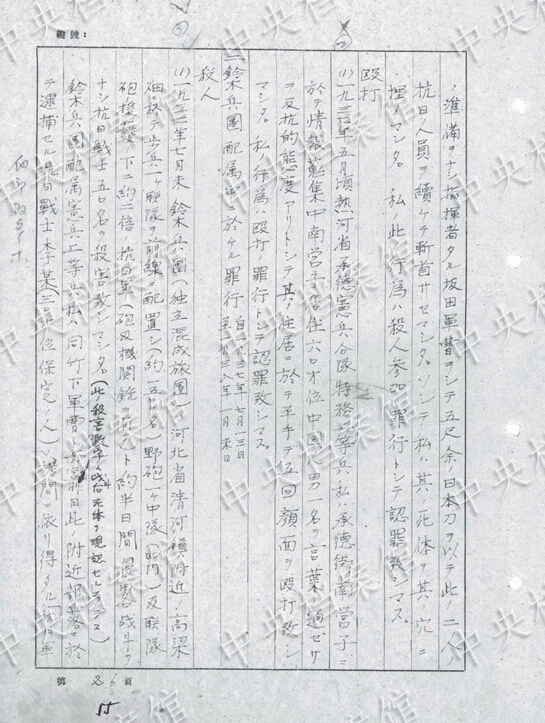 編號：
ノ準備ヲナシ指揮者タル坂田軍曹ヲシテ五尺余ノ日本刀ヲ以テ此ノ二人ノ
抗日人員ヲ續ケテ斬首サセマシタ。ソシテ私ハ其ノ死体ヲ其ノ穴ニ
埋メマシタ。私ノ此ノ行為ハ殺人参加罪行トシテ認罪致シマス。
殴打
(1)一九三七年五月頃熱河省承德憲兵分隊特務上等兵ノ私ハ承德街南営子ニ
於テ情報蒐集中南営子居住六〇才位中国人男一名ヲ言葉通ゼサ
ヲ反抗的態度アリトシテ其ノ住居ニ於テ平手デ五回顔面ヲ殴打致シ
マシタ。私ノ行為ハ殴打ノ罪行トシテ認罪致シマス。
二鈴木兵團配属中ニ於ケル罪行 自一九三七年七月十三日 至一九三八年一月末日
殺人
(1)一九三七年七月末鈴木兵團(独立混成旅團)ハ河北省清河鎮附近ノ高梁
畑於テ歩兵一ヶ聯隊ヲ前線ニ配置シ(約一五〇〇名)野砲一ヶ中隊(四門)及聯隊
砲援護ノ下ニ約二倍ノ抗日軍(砲及機関銃ヲ有ス)ト約半日間
ナシ抗日戰士五〇名ヲ殺害致シマシタ。(此ノ殺害数字ハ死体ヲ現認セシモノデス)
鈴木兵團配属憲兵上等兵ノ私ハ同竹下軍曹ト共ニ前日此ノ附近部落ニ於
テ逮捕セル抗日戰士李某(三十才位保定ノ人)ノ拷問ニ依リ得タル
第 26 頁
55
中央档案馆